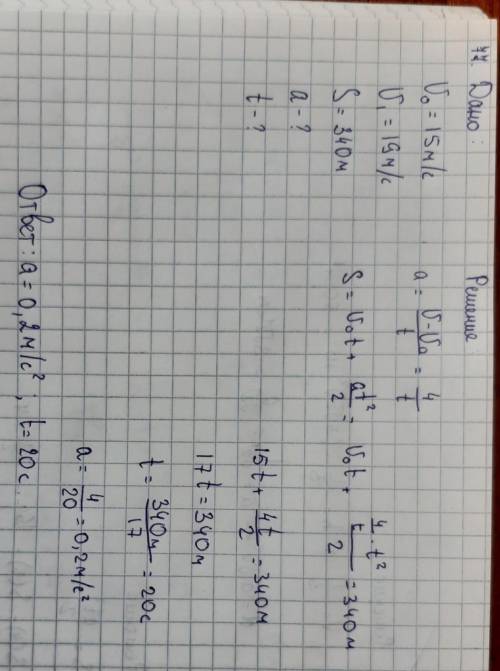 77. Дано:
V₀ = 15 м/с
V₁ = 19 м/с
S = 340 м
a - ?
t - ?
Решение:
a = (V-V₀)/t = 4/t
S = V₀t + at²/2 = V₀t + (4/t · t²)/2 = 340 м
15t + 4t/2 = 340 м
17t = 340 м
t = 340 м/17 = 20 с
a = 4/20 = 0,2 м/с²
Ответ: a = 0,2 м/с² ; t = 20 с.